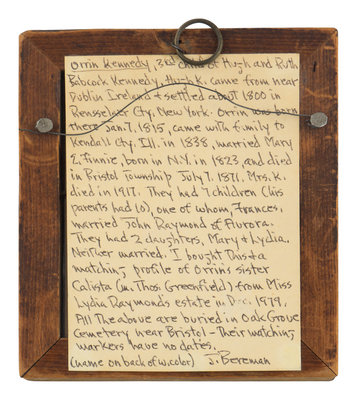 Orrin Kennedy, 3rd child of Hugh and Ruth
Babcock Kennedy. Hugh K. came from near
Dublin Ireland & settled about 1800 in
Rensselaer Cty. New York. Orrin was born
there Jan. 7, 1815, came with family to
Kendall Cty. Ill. in 1838, married Mary
E. Finnie, born in N.Y. in 1823, and died
in Bristol Township July 7, 1871. Mrs. K.
died in 1917. They had 7 children (his
parents had 10), one of whom, Frances,
married John Raymond of Aurora.
They had 2 daughters, Mary & Lydia.
Neither married. I bought this & a
matching profile of Orrins sister
Calista (m. Thos. Greenfield) from Miss
Lydia Raymonds estate in Dec, 1979.
All the above are buried in Oak Grove
Cemetery near Bristol - Their matching
markers have no dates.
(name on back of w.color) J. Bereman